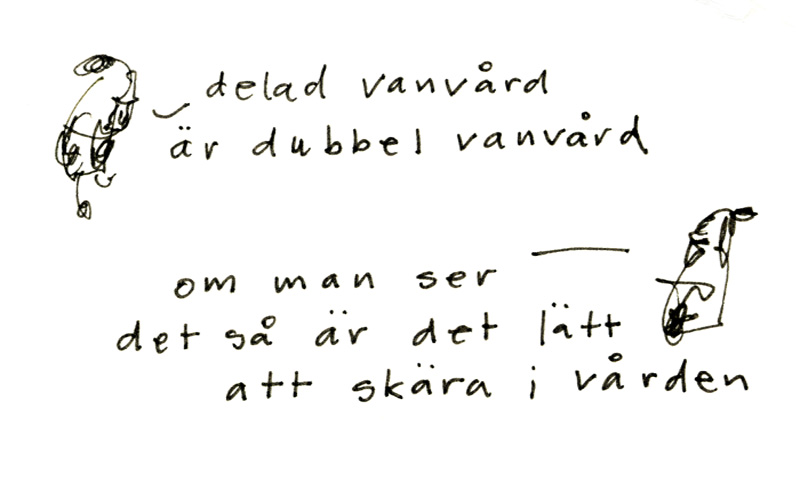 delad vanvård
är dubbel vanvård
om man ser
det så är det lätt
att skära i vården